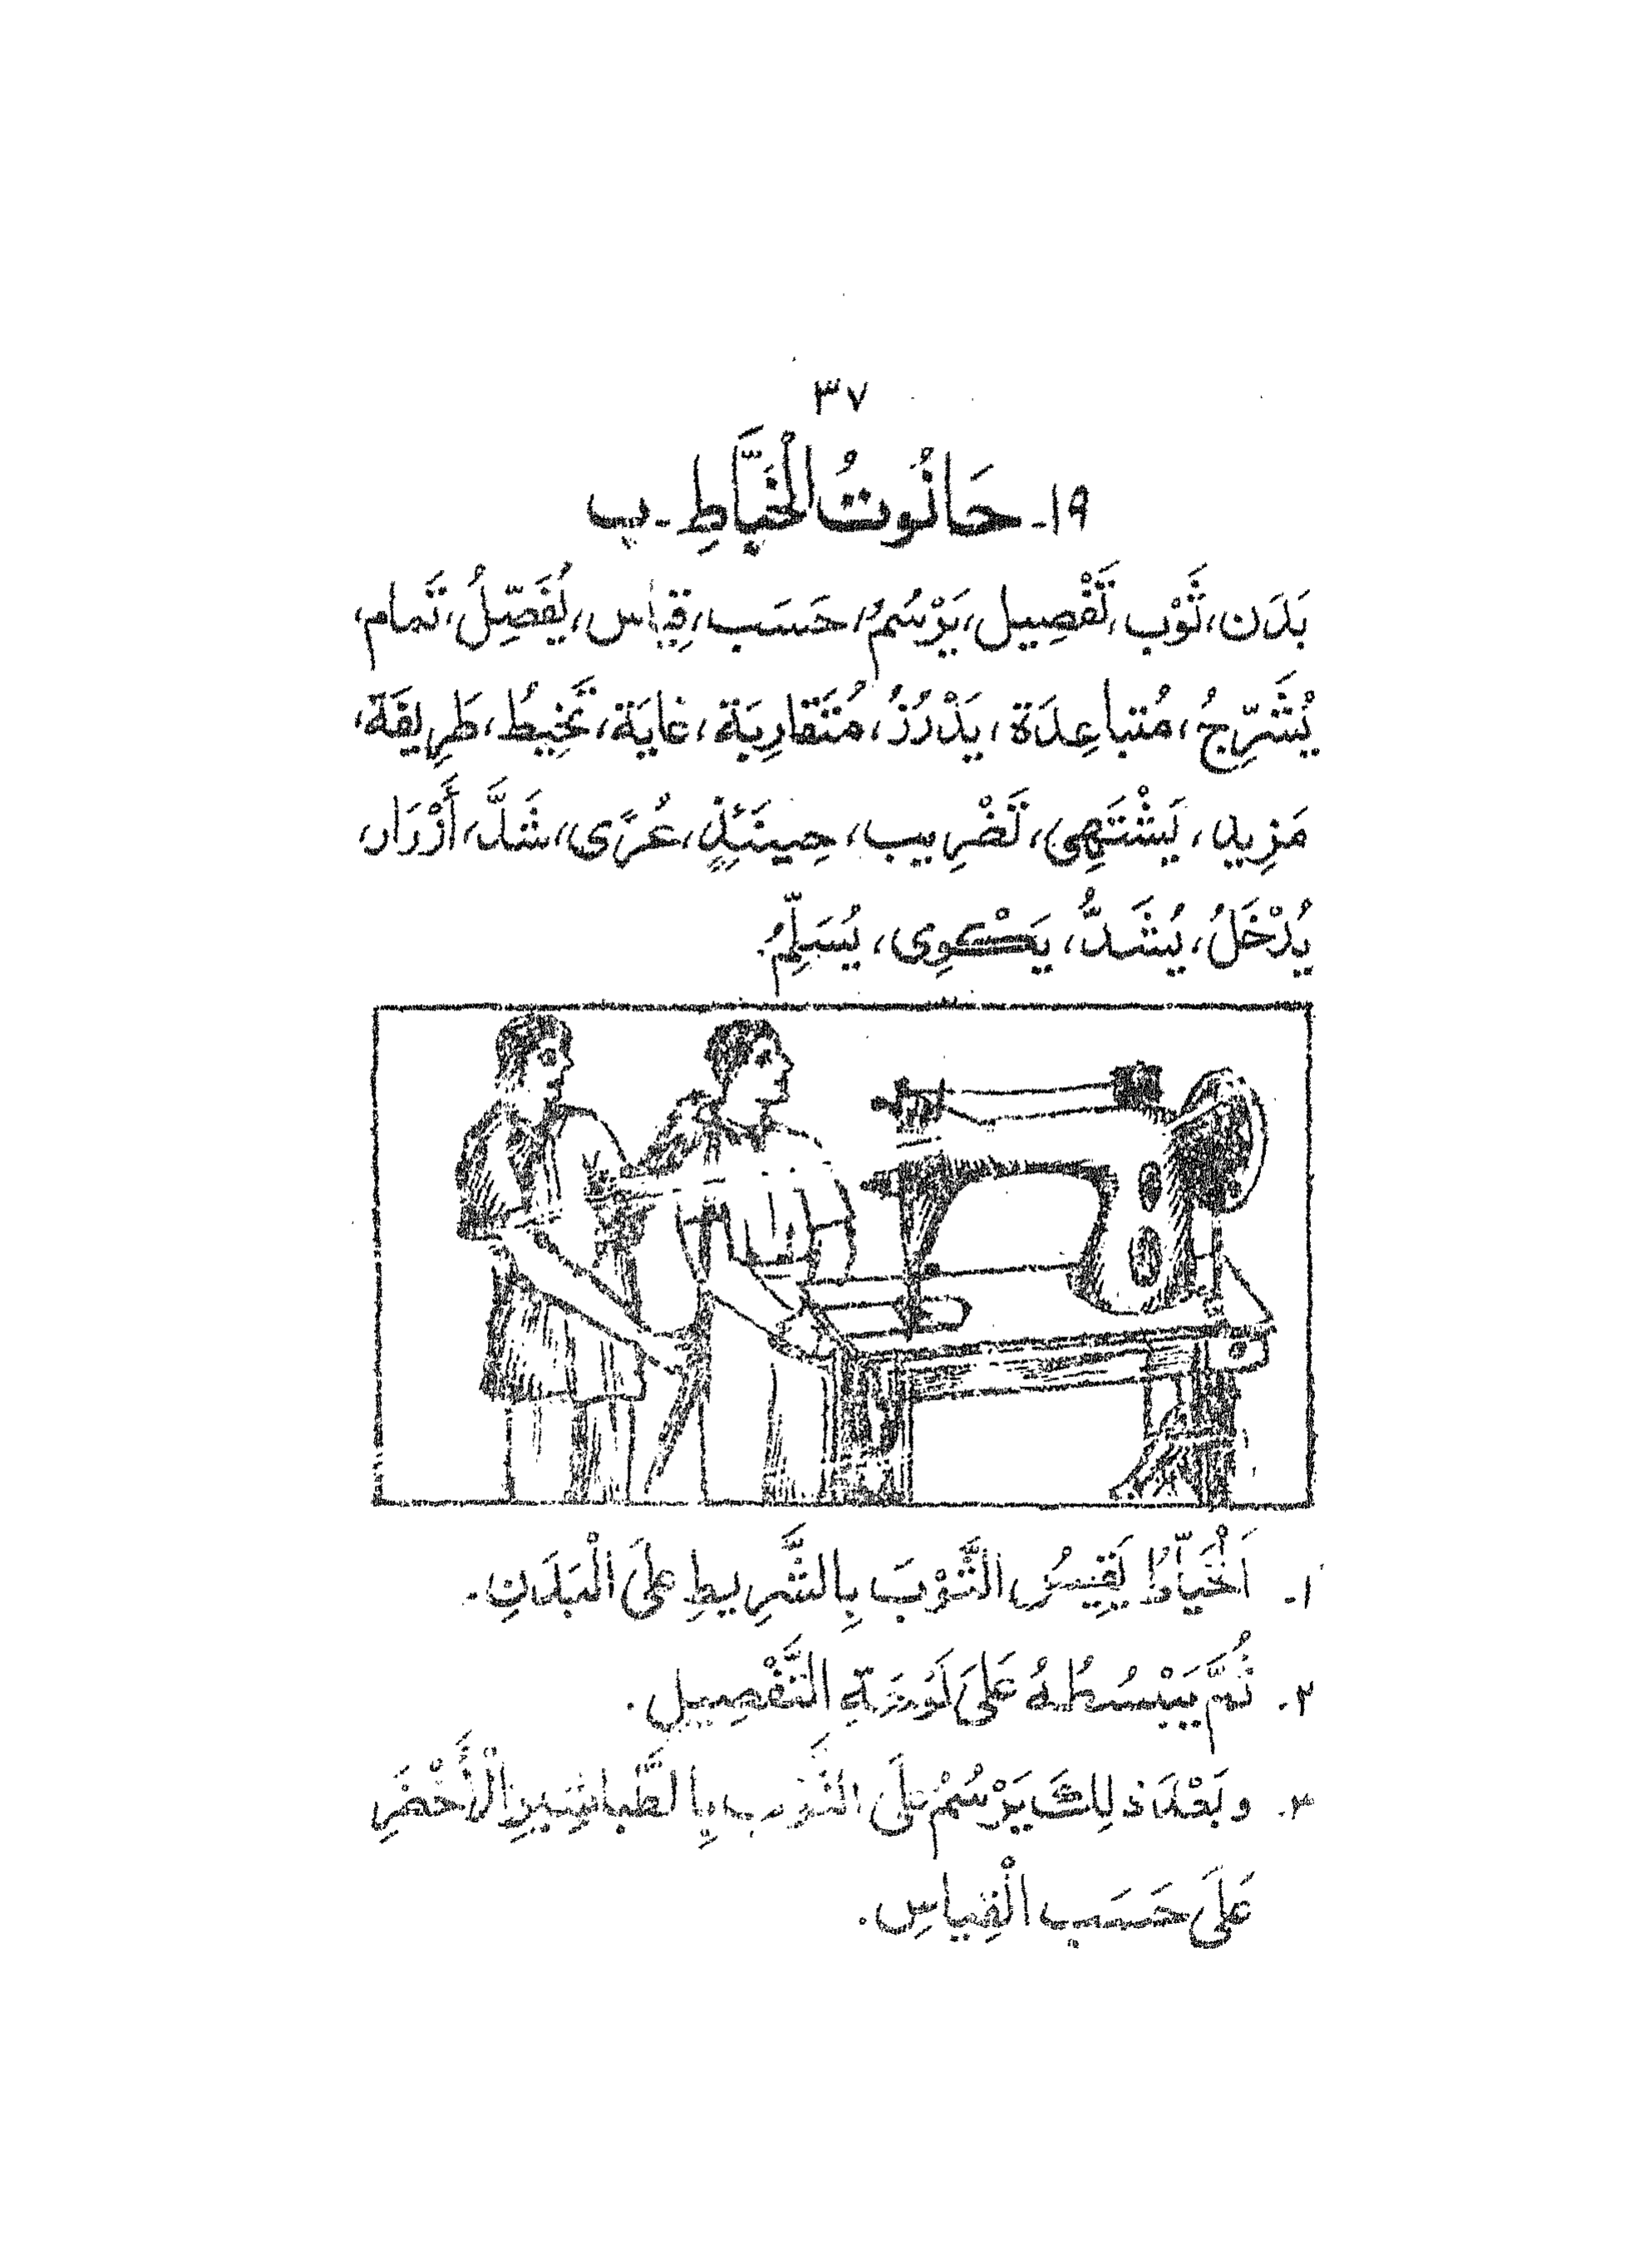 ٣٧
١٩- حَانُوتُ الْخَيَّاطِ - ب
بَدَن، ثَوْب، تَفْصِيل، يَرْسُمُ، حَسَب، قِياس، يُفَصِّلُ، تَمام،
يُشَرِّجُ، مُتباعِدَة، يَدْرُزُ، مُتَقارِبَة، غايَة، تَخِيطُ، طَرِيقَة،
مَزِيد، يَشْتَهِى، تَضْرِيب، حِينَئِذٍ، عُرًى، شَدَّ، أَزْرَار،
يُدْخَلُ، يُشَدُّ، يَكْوِى، يُسَلِّمُ.
١- اَلْخَيّاطُ يَقِيسُ الثَّوْبَ بِالشَّرِيطِ عَلَى الْبَدَنِ.
٢- ثُمَّ يَبْسُطُهُ عَلَى لَوْحَةِ التَّفْصِيلِ.
٣- وبَعْدَ ذٰلِكَ يَرْسُمُ عَلَى الثَّوْبِ بِالطَّباشِيرِ الْأَخْضَرِ
عَلَى حَسَبِ الْقِياسِ.